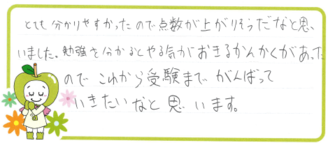 とても分かりやすかったので点数が上がりそうだなと思
いました。勉強を分かるとやる気がおきるかんかくがあった
のでこれから受験までがんばって
いきたいなと思います。